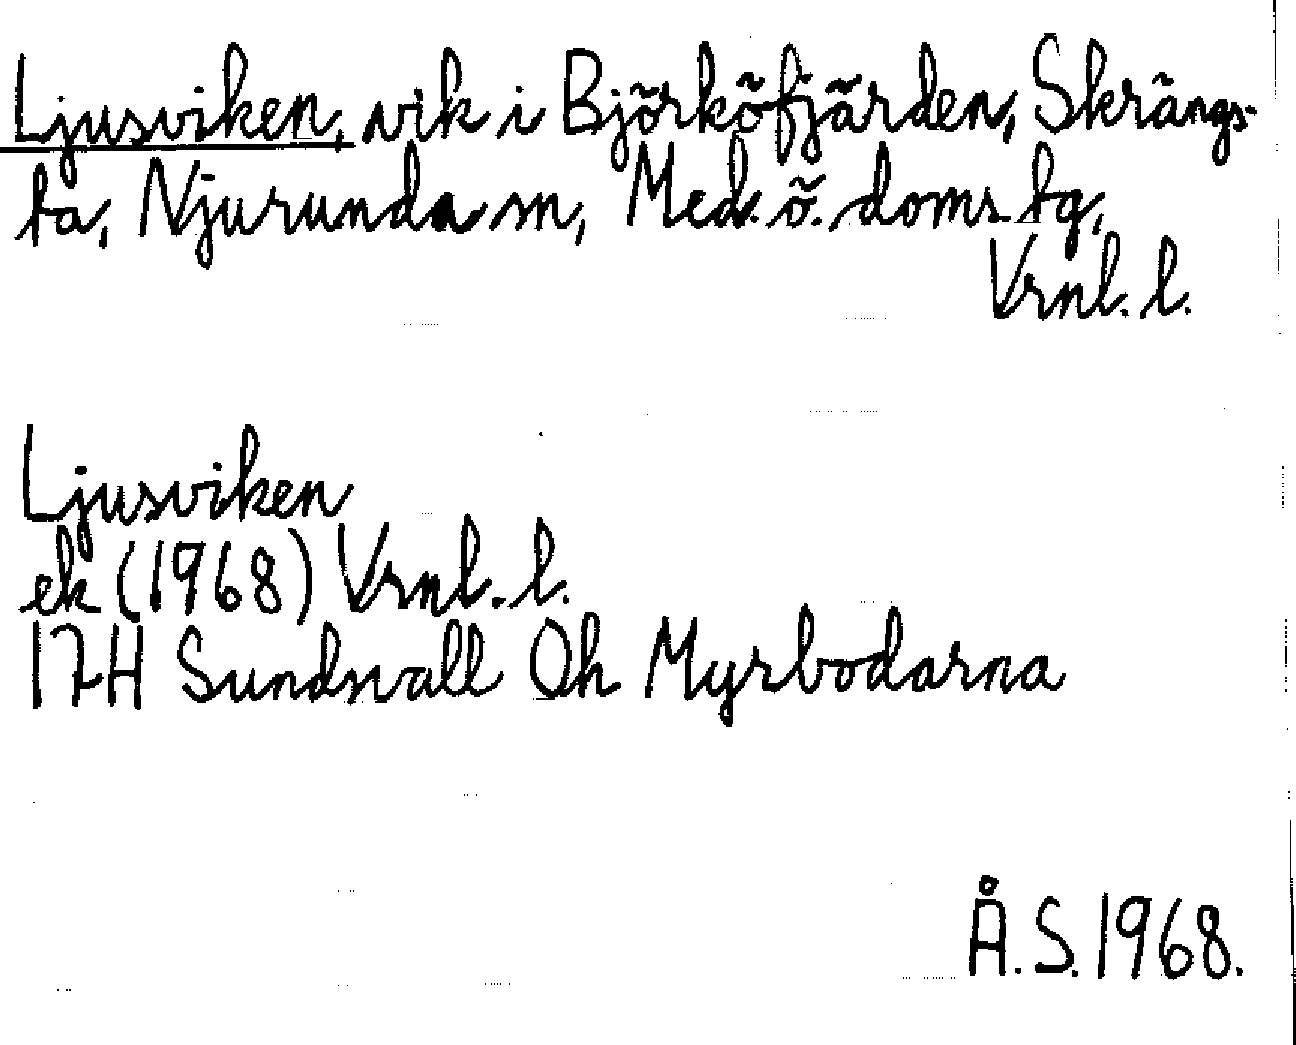 Ljusviken, vik i Björköfjärden, Skrängs-
ta, Njurunda sn, Med. ö. doms. tg,
Vrnl. l.
Ljusviken
ek (1968) Vrnl. l.
17H Sundsvall Öh Myrbodarna
Å. S. 1968.